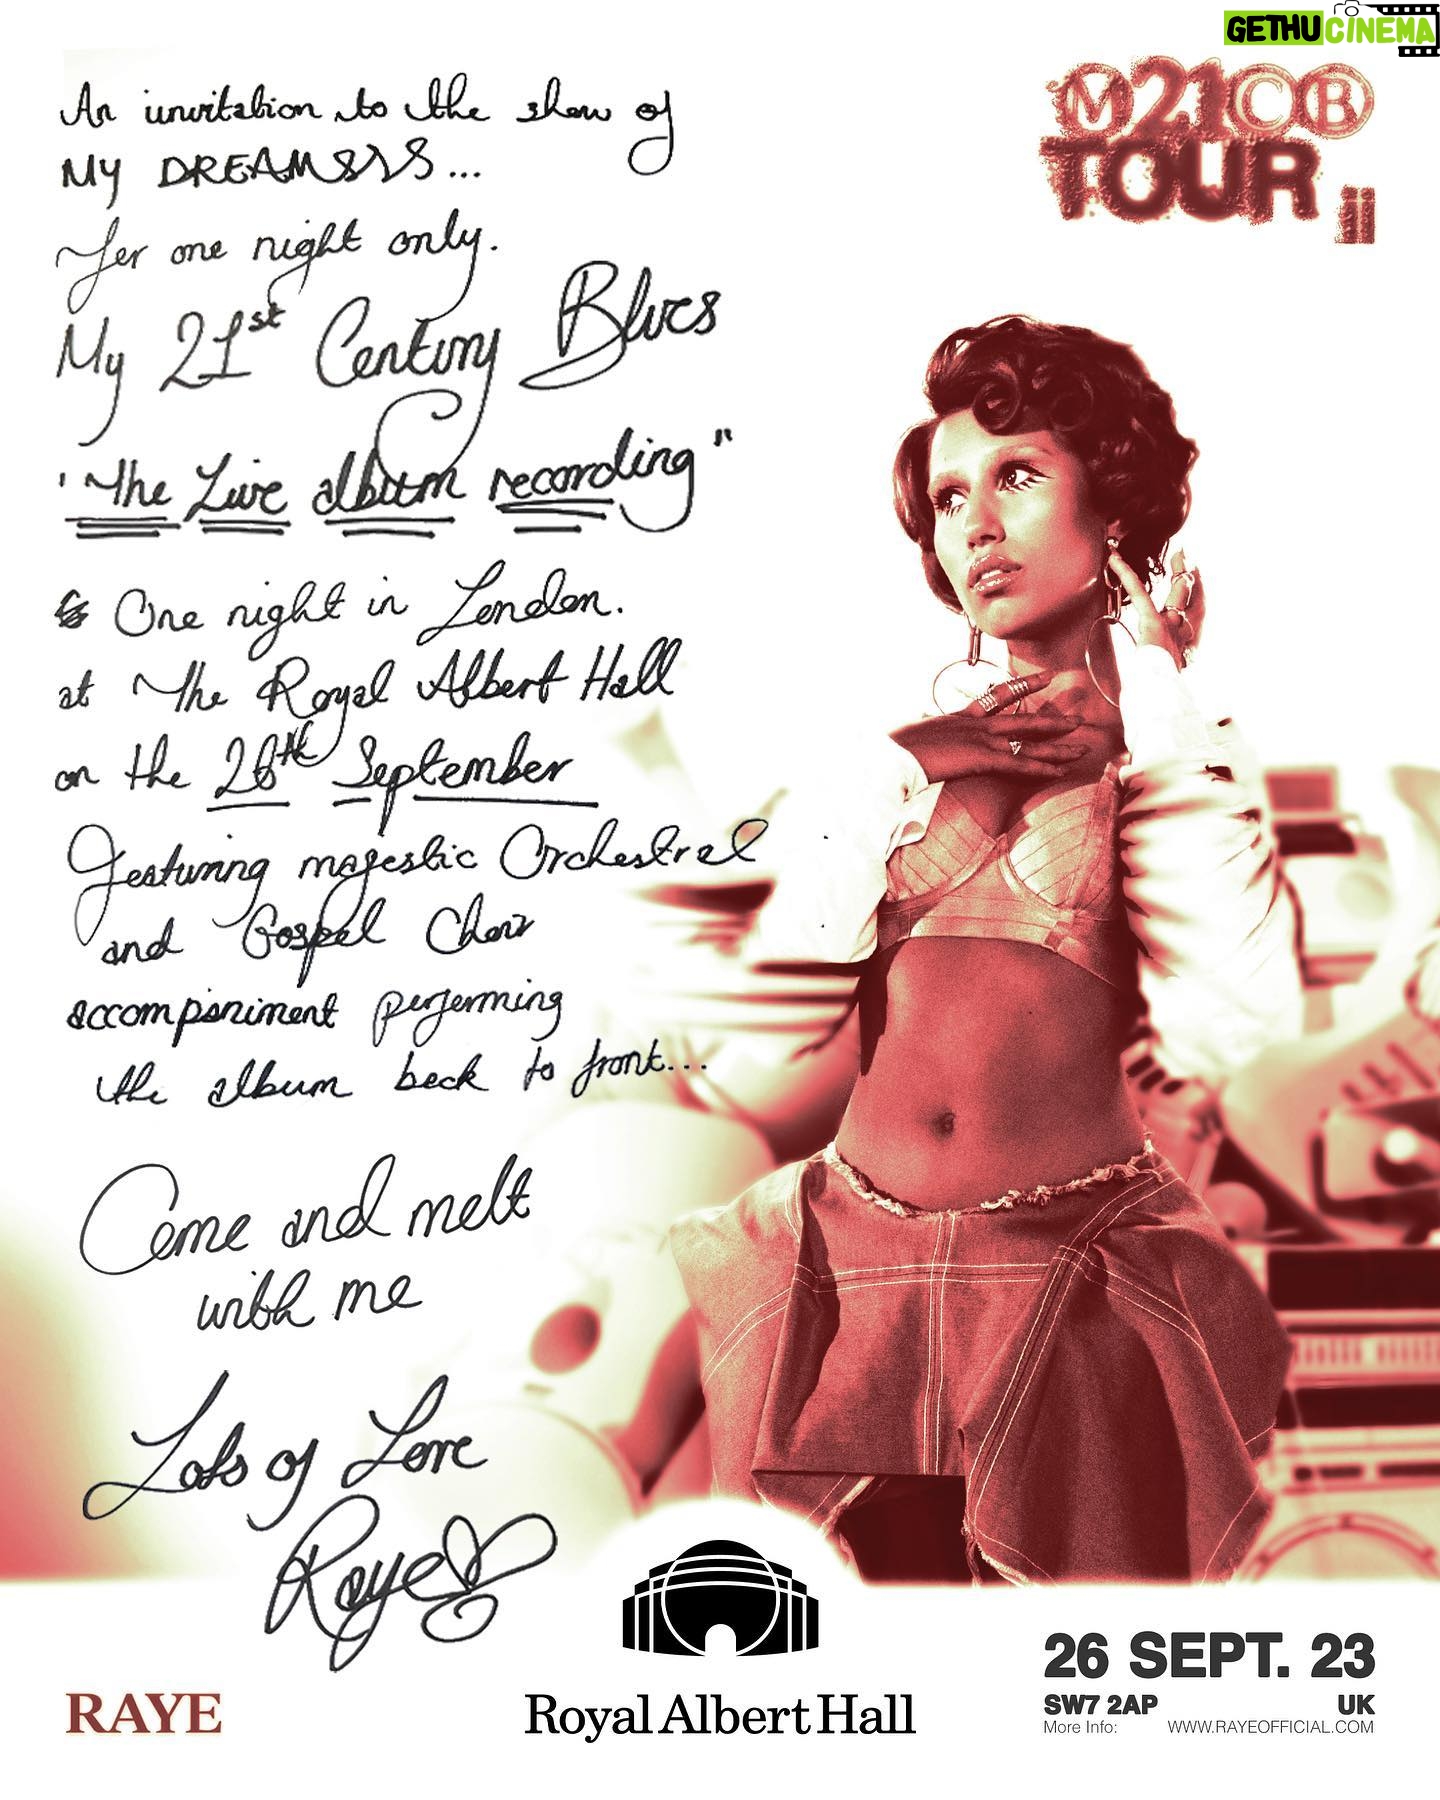 GETHUCINEMA
M21CB
TOUR ii
An invitation to the show of
MY DREAMSSS...
For one night only.
My 21st Century Blues
"The Live album recording"
One night in London.
at The Royal Albert Hall
on the 26th September
Featuring majestic Orchestral
and Gospel Choir
accompaniment performing
the album back to front...
Come and melt
with me
Lots of Love
Raye
RAYE
Royal Albert Hall
26 SEPT. 23
SW7 2AP UK
More Info: WWW.RAYEOFFICIAL.COM